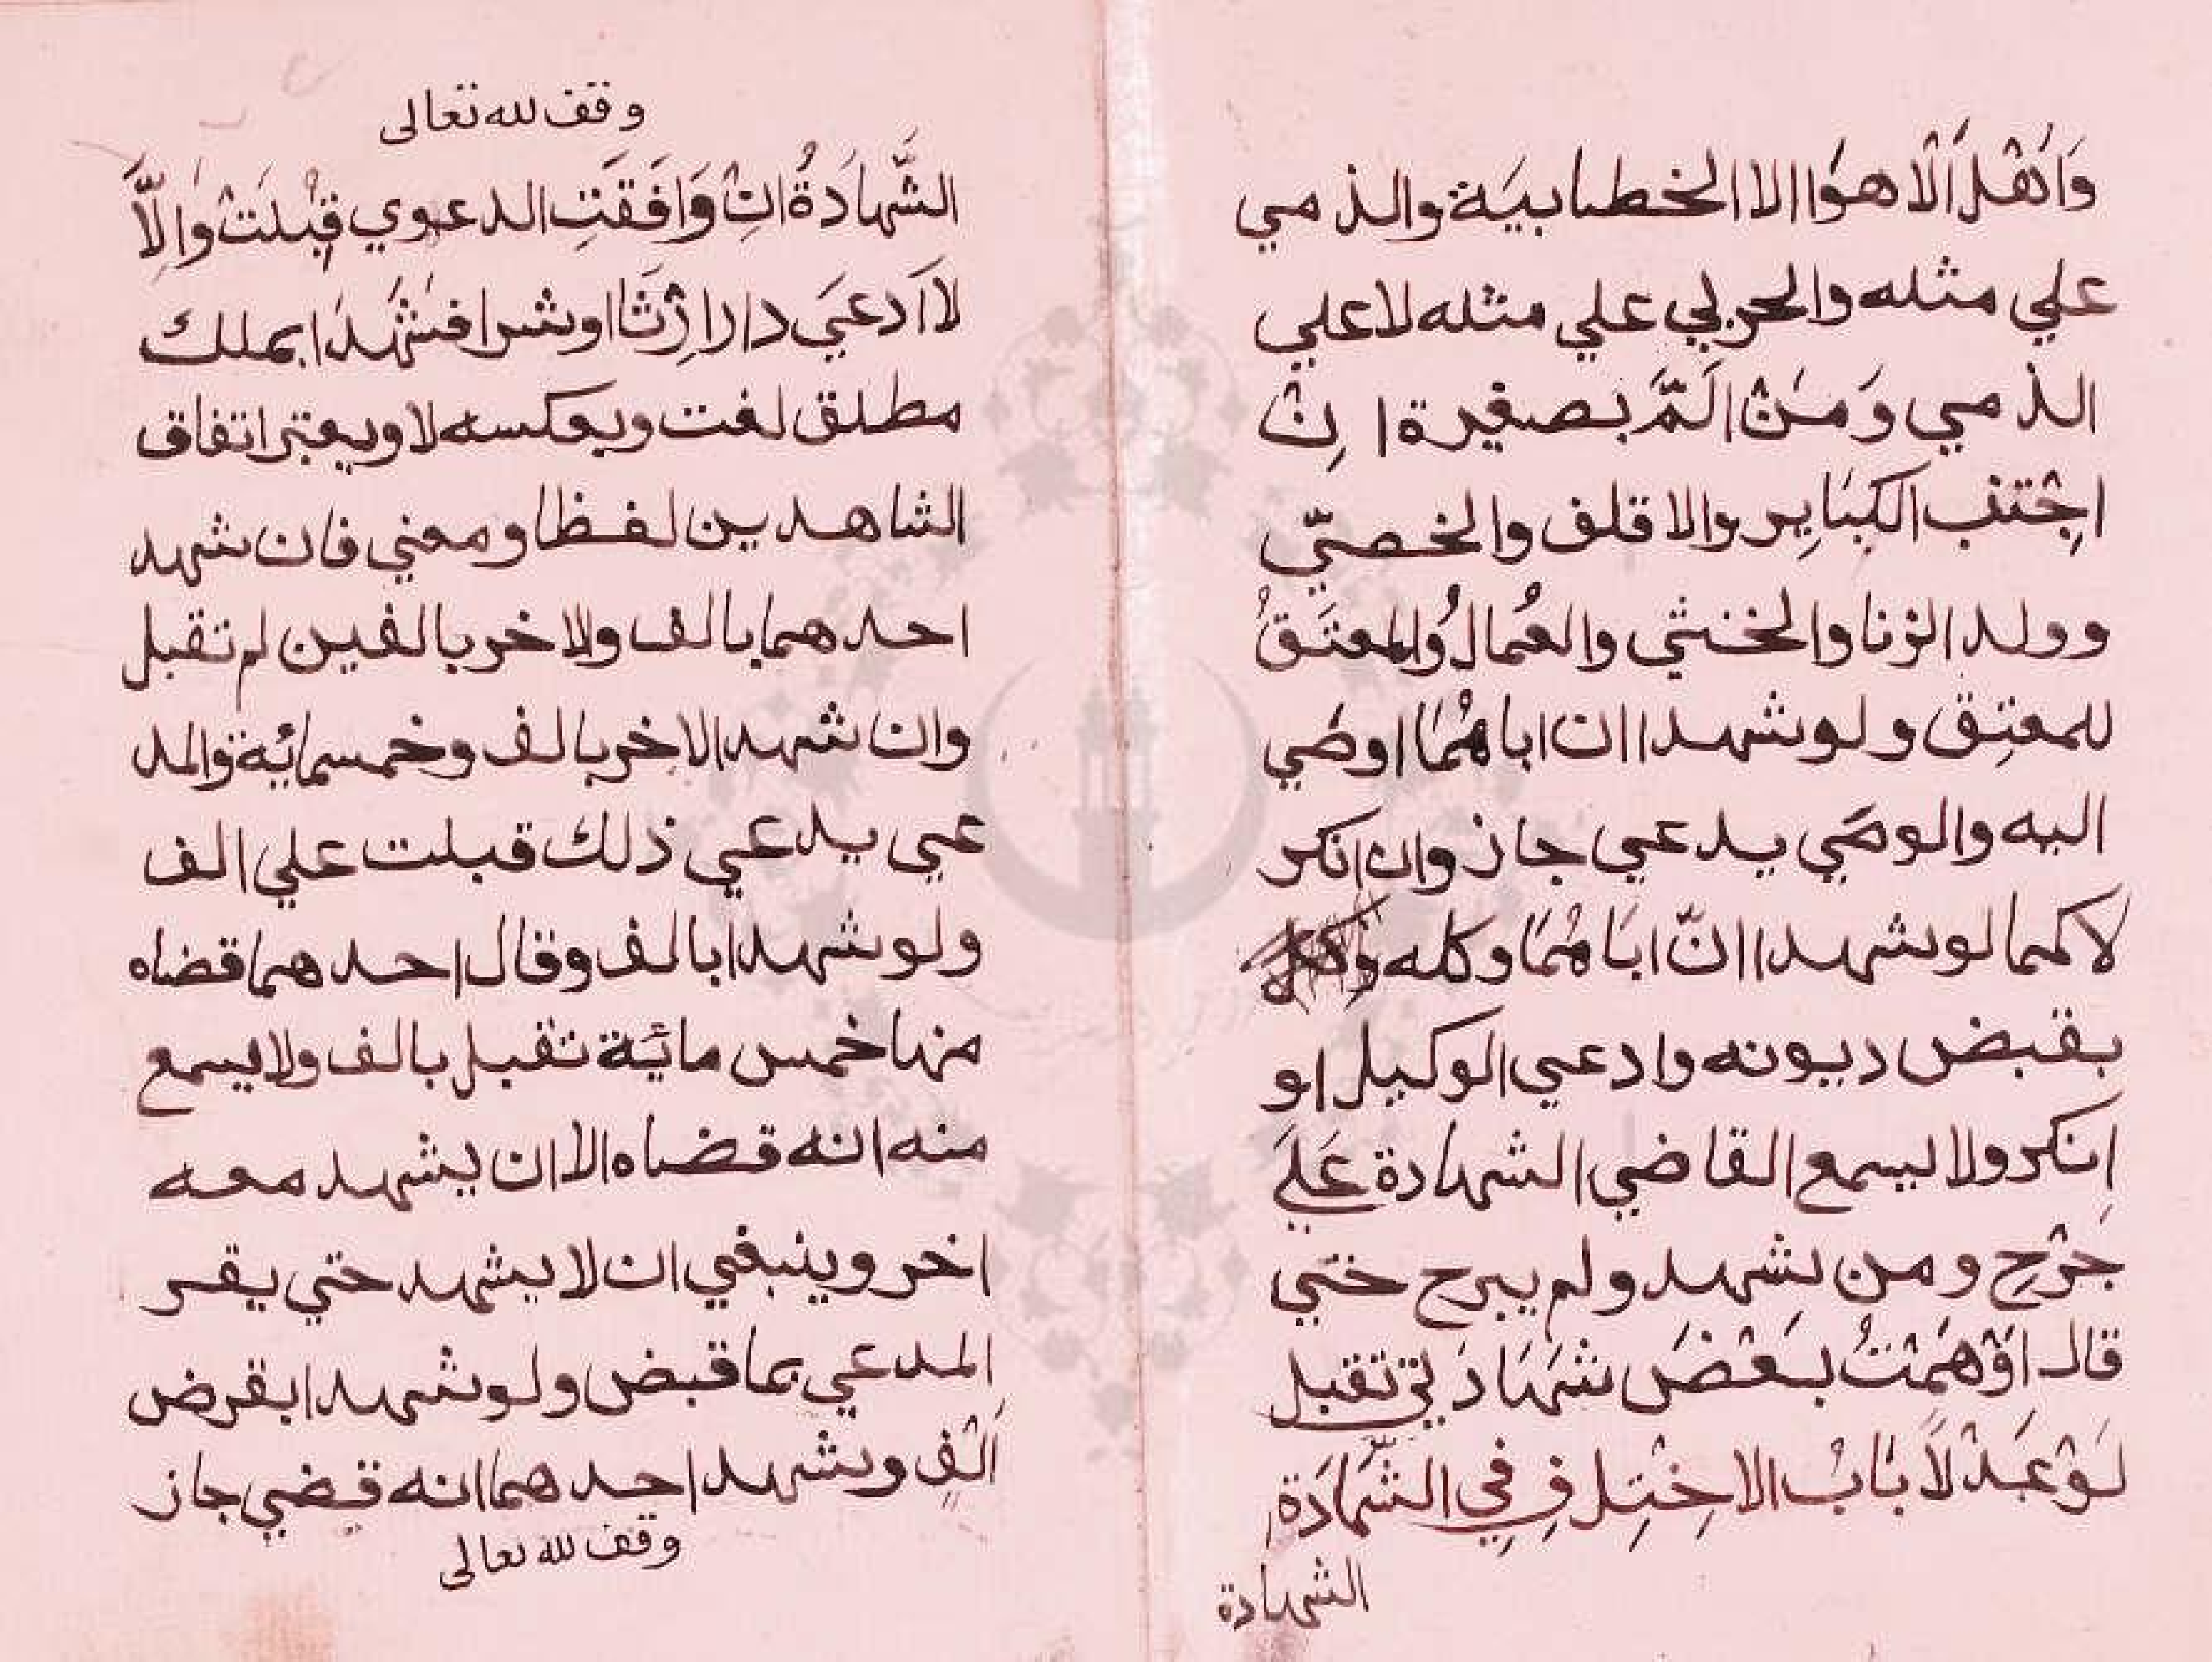 وَاَهْلُ اَلْاهوَا الا الخطابيَة والذمي
علي مثله والحربي علي مثله لا علي
الذمي وَمَنْ اَلَمَّ بصغيرة اِنْ
اجْتنب الكبَايِر والاقلف والخصيّ
وولد الزنا والخنثي والعُمالُ والمعتَقُ
للمعتِق ولو شهدا ان اباهُمَا اوصَي
اليه والوصَي يدعي جاز وان انكر
لا كما لو شهدا انّ ابَاهُمَا وكله
بقبض ديونه وادعي الوكيل او
اِنكر ولا يسمع القاضي الشهادة عَلَي
جَرْحٍ ومن شهد ولم يبرح حتي
قال اَوْهَمْتُ بَعْضَ شَهَادَتي تقبل
لَوْ عَدْلاَ بَابُ الاخْتِلفِ فِي الشَّهَادَةِ
الشهادة
وقف لله تعالى
الشَّهَادَةُ اِنْ وَافَقَتِ الدعوي قُبْلَتْ وَاِلاَّ
لاَ اَدعَي دارا اِرْثَا اوشرا فشَهَدَا بملك
مطلق لغت وبعكسه لا ويعتبر اتفاق
الشاهدين لفظا ومعني فان شهد
احدهما بالف ولاخر بالفين لم تقبل
وان شهد الاخر بالف وخمسمائة والمد
عي يدعي ذلك قبلت علي الف
ولو شهدا بالف وقال احدهما قضاه
منها خمس مائة تقبل بالف ولا يسمع
منه انه قضاه الا ان يشهد معه
اخر وينبغي ان لا يشهد حتي يقر
المدعي بما قبض ولو شهدا بقرض
اَلْفٍ وشهد احدهما انه قضي جاز
وقف لله تعالى